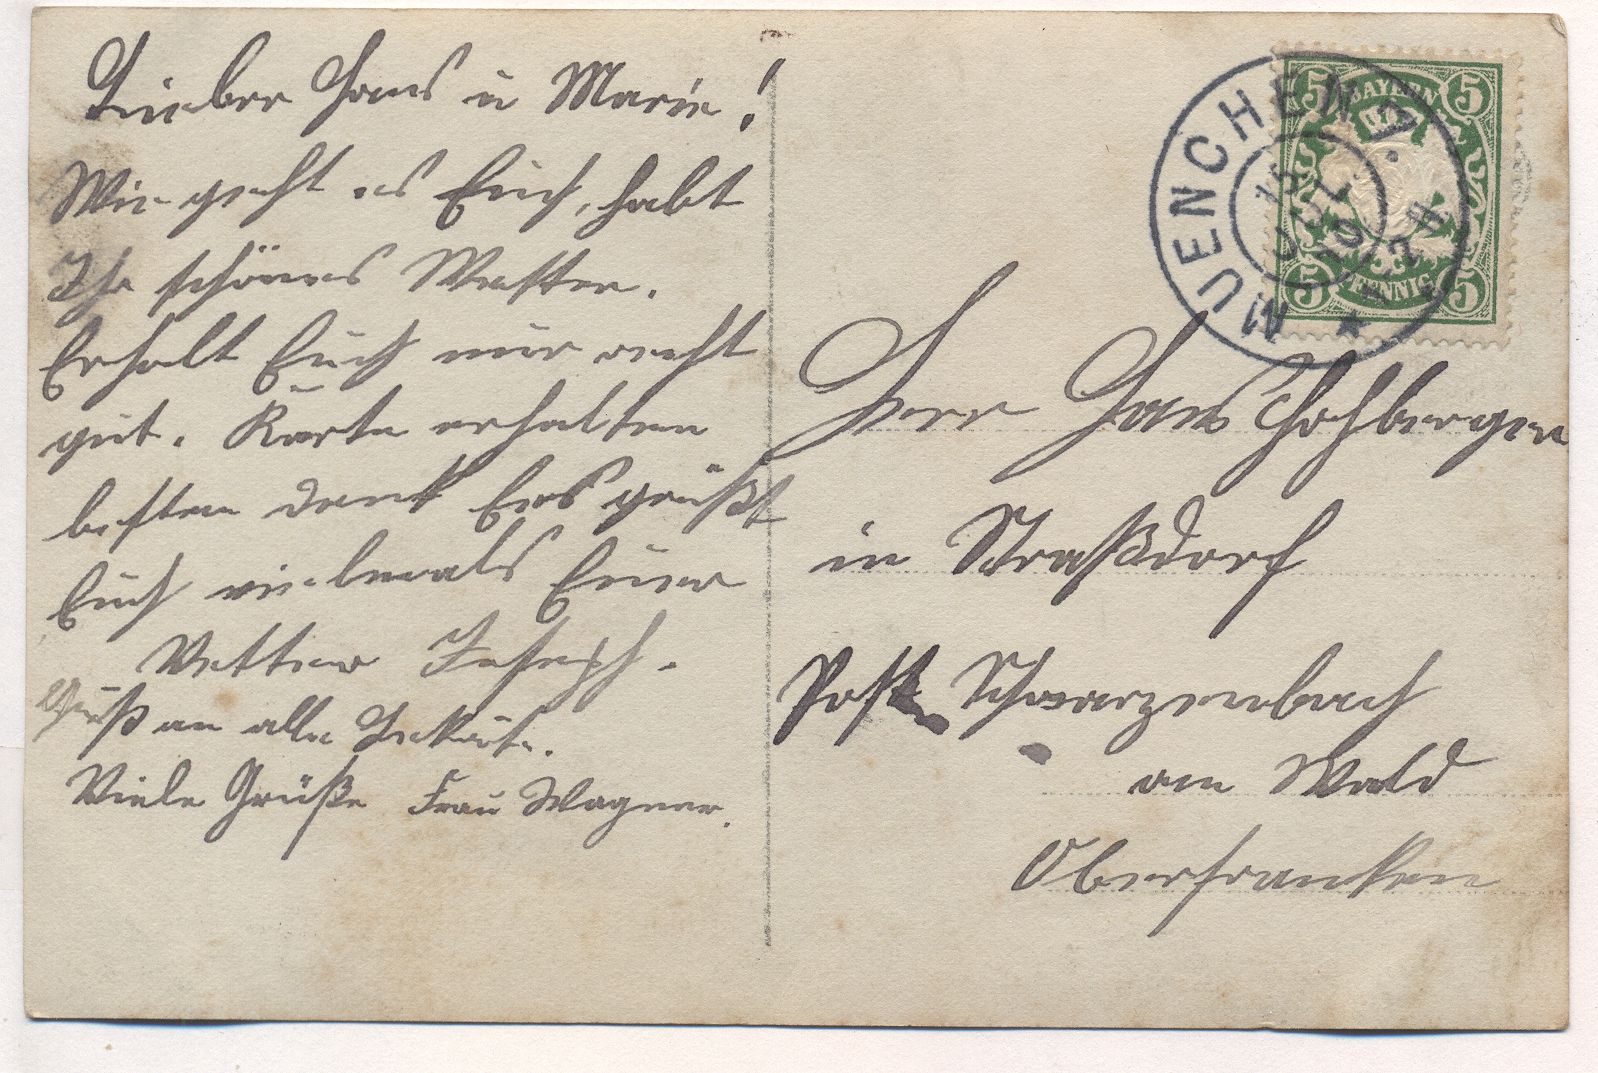 Lieber Hans u Marie!
Wie geht es Euch, habt
Ihr schönes Wetter.
Erhalt Euch nur recht
gut. Karte erhalten
besten dank Es grüßt
Euch vielmals Euer
Vetter Joseph.
Gruß an alle
Viele Grüße Frau Wagner.
MUENCHEN 7.
19 JUL
BAYERN
5 5
5 PFENNIG 5
Herr Hans Hohberger
in Straßdorf
Post Schwarzenbach
am Wald
Oberfranken